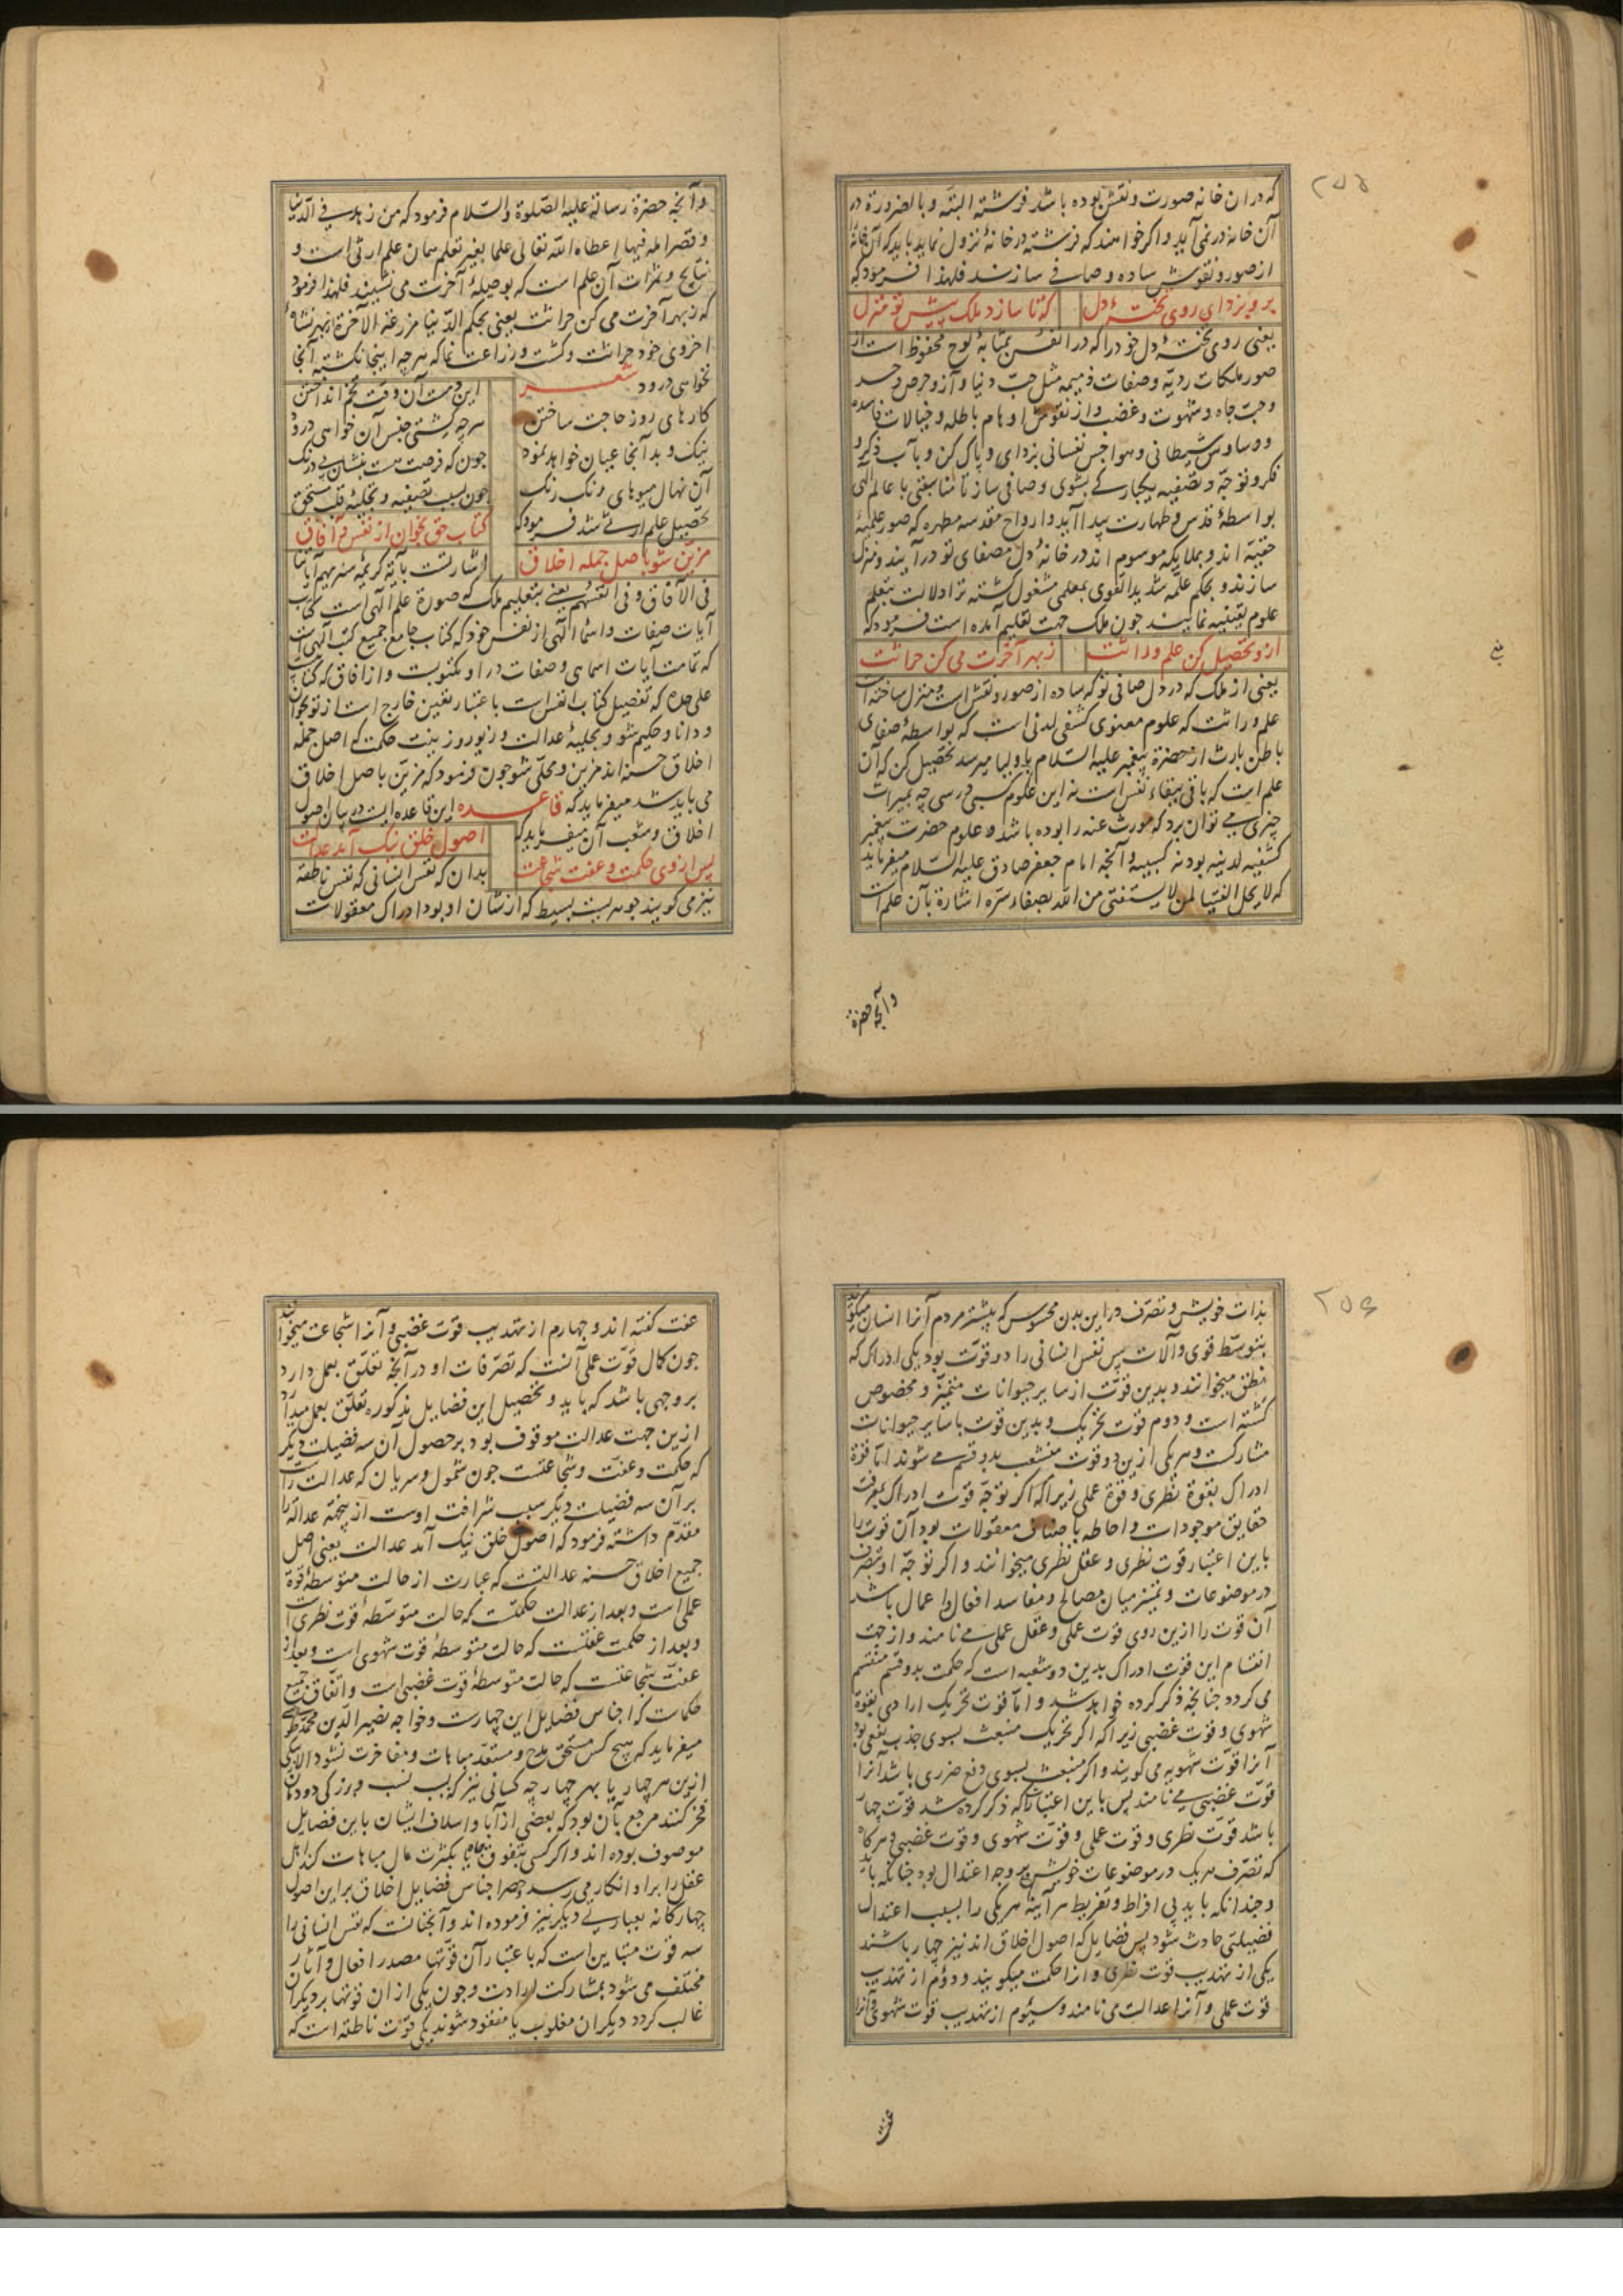 ۲۵۵
که در ان خانه صورت و نقش بوده باشد فرشته البته و بالضرورة در
آن خانه در نمی آید و اکر خواهند که فرشته در خانهٔ نزول نماید باید که آن خانه
از صور و نقوش ساده و صافی سازند فلهذا فرمود که
برو بزدای روی تختهٔ دل
که تا سازد ملک پیش تو منزل
یعنی روی تختهٔ دل خود را که در انفس بمثابهٔ لوح محفوظ است از
صور ملکات ردیّه و صفات ذمیمه مثل حبّ دنیا و آز و حرص و حسد
و حبّ جاه و شهوت و غضب و از نقوش اوهام باطله و خیالات فاسده
و وساوس شیطانی و هواجس نفسانی بزدای و پاک کن و بآب ذکر و
فکر و توجّه و تصفیه یکبارکے بشوی و صافی ساز تا مناسبتی با عالم الٓهی
بواسطهٔ قدس و طهارت پیدا آید و ارواح مقدسه مطهره که صور علمیهٔ
حقیّه اند و بملایکه موسوم اند در خانهٔ دل مصفای تو در آیند و منزل
سازند و بحکم علّمه شدید القوی بمعلمی مشغول کشته ترا دلالت بتعلم
علوم یقینیه نمایند چون ملک جهت تعلیم آمده است فرمود که
ازو تحصیل کن علم وراثت
ز بهر آخرت می کن حراثت
یعنی از ملک که در دل صافی تو که ساده از صور و نقش است و منزل ساخته است
علم وراثت که علوم معنوی کشفی لدنی است که بواسطهٔ صفای
باطن بارث از حضرة پیغمبر علیه السّلام باولیا میرسد تحصیل کن که آن
علم است که باقی ببقاء نفس است نه این علوم کسبی درسی چه بمیراث
چیزی مے توان برد که مورث عنه را بوده باشد و علوم حضرت پیغمبر
کشفیه لدینه بود نه کسبیه و آنچه امام جعفر صادق علیه السّلام میفرماید
که لا یحل الفتیا لمن لا یستفتی من اللّه بصفاء سرّه اشارة بآن علم است
وآنچه حضرة
و آنچه حضرة رسالة علیه الصّلوة و السّلام فرمود که من زهد فی الدّنیا
و قصر امله فیها اعطاه اللّه تعالی علما بغیر تعلم همان علم ارثی است و
نتایج و ثمرات آن علم است که بوصیلهٔ آخرت می نشیند فلهذا فرمود
که ز بهر آخرت می کن حراثت یعنی بحکم الدّنیا مزرعة الآخرة از بهر نشاهٔ
اخروی خود حراثت و کشت و زراعت نما که هر چه اینجا نکشتهٔ آنجا
نخواهی درود شعــر
این دمت آن وقت تخم انداختن
کارهای روز حاجت ساختن
هر چه کشتی جنس آن خواهی درود
نیک و بد آنجا عیان خواهد نمود
چون که فرصت هست بنشان بی درنک
آن نهال میوهای رنک رنک
چون بسبب تصفیه و تخلیهٔ قلب مستحق
تحصیل علم ارثی شد فرمود که
کتاب حق بخوان از نفس و آفاق
مزیّن شو باصل جمله اخلاق
اشارتست بآیة کریمهٔ سنریهم آیاتنا
فی الآفاق و فی انفسهم یعنی بتعلیم ملک که صورة علم الٓهی است کتاب
آیات صفات و اسماء الٓهی از نفس خود که کتاب جامع جمیع کتب الٓهی است
که تمامت آیات اسمایی و صفات در او مکتوبست و از افاق که کتابیست
علی حده که تفصیل کتاب انفس است باعتبار تعین خارج است از تو بخوان
و دانا و حکیم شو و بحلیهٔ عدالت و زیور و زینت حکمت که اصل جمله
اخلاق حسنه اند مزین و محلّی شو چون فرمود که مزیّن باصل اخلاق
می باید شد میفرماید که قاعــده این قاعده ایست در بیان اصول
اخلاق و شعب آن میفرماید که
اصول خلق نیک آمد عدالت
پس از وی حکمت و عفت شجاعت
بدان که نفس انسانی که نفس ناطقهٔ
نیز می کویند جوهریست بسیط که از شان او بود ادراک معقولات
۲۵۶
بذات خویش و تصرّف در این بدن محسوس که بیشتر مردم آنرا انسان میکویند
بتوسّط قوی و آلات پس نفس انسانی را دو قوّت بود یکی ادراک که
نطق میخوانند و بدین قوّت از سایر حیوانات متمیّز و مخصوص
کشته است و دوم قوّت تحریک و بدین قوت با سایر حیوانات
مشارکست و هر یکی ازین دو قوت منشعب بدو قسم مے شوند امّا قوّة
ادراک بقوّة نظری و قوّة عملی زیرا که اکر توجّه قوّت ادراک بمعرفت
حقایق موجودات و احاطه باصناف معقولات بود آن قوت را
باین اعتبار قوت نظری و عقل نظری میخوانند و اکر توجّه او بتصرّف
در موضوعات و تمییز میان مصالح و مفاسد افعال و اعمال باشد
آن قوت را ازین روی قوت عملی و عقل عملی مے نامند و از جهت
انقسام این قوّت ادراک بدین دو شعبه است که حکمت بدو قسم منقسم
می کردد چنانچه ذکر کرده خواهد شد و امّا قوّت تحریک ارادی بقوّة
شهوی و قوّت غضبی زیرا که اکر تحریک منبعث بسوی جذب نفعی بود
آنرا قوّت شهویه می کویند و اکر منبعث بسوی دفع ضرری باشد آنرا
قوّت غضبی مے نامند پس باین اعتبارات که ذکر کرده شد قوّت چهار
باشد قوّت نظری و قوت عملی و قوّت شهوی و قوت غضبی و هر کاه
که تصرّف هر یک در موضوعات خویش بر وجه اعتدال بود چنانکه باید
و چندانکه باید بی افراط و تفریط هر آینه هر یکی را بسبب اعتدال
فضیلتی حادث شود پس فضایل که اصول اخلاق اند نیز چهار باشند
یکی از تهذیب قوت نظری و انرا حکمت میکویند و دوّم از تهذیب
قوّت عملی و آنرا عدالت می نامند و سیّوم از تهذیب قوّت شهوی و آنرا
عفت
عفت کفته اند و چهارم از تهذیب قوّت غضبی و آنرا شجاعت میخوانند
چون کمال قوّت عملی آنست که تصرّفات او در آنچه تعلّق بعمل دارد
بر وجهی باشد که باید و تحصیل این فضایل مذکوره تعلّق بعمل میدارد
ازین جهت عدالت موقوف بود بر حصول آن سه فضیلت دیکر
که حکمت و عفّت و شجاعتست چون شمول و سریان که عدالت راست
بر آن سه فضیلت دیکر سبب شرافت اوست ازینجهة عدالة را
مقدّم داشته فرمود که اصول خلق نیک آمد عدالت یعنی اصل
جمیع اخلاق حسنه عدالتست که عبارت از حالت متوسطهٔ قوّة
عملی است و بعد از عدالت حکمتست که حالت متوسّطهٔ قوت نظری است
و بعد از حکمت عفتست که حالت متوسطهٔ قوت شهوی است و بعد از
عفّت شجاعتست که حالت متوسطهٔ قوت غضبی است و اتّفاق جمیع
حکماست که اجناس فضایل این چهارست و خواجه نصیر الدّین محمّد طوسی
میفرماید که هیچ کس مستحق مدح و مستعدّ مباهات و مفاخرت نشود الا بیکی
ازین هر چهار یا بهر چهار چه کسانی نیز که بسبب نسب و بزرکی دودمان
فخر کنند مرجع بآن بود که بعضی از آبا و اسلاف ایشان باین فضایل
موصوف بوده اند و اکر کسی بتفوق یا بکثرت مال مباهات کند اهل
عقل را بر او انکار می رسد و حصر اجناس فضایل اخلاق بر این اصول
چهارکانه بعبارتے دیکر نیز فرموده اند و آنچنانست که نفس انسانی را
سه قوت متباین است که باعتبار آن قوّتها مصدر افعال و آثار
مختلف می شود بمشارکت ارادت و چون یکی از ان قوتها بر دیکران
غالب کردد دیکران مغلوب یا مفقود شوند یکی قوّت ناطقه است که